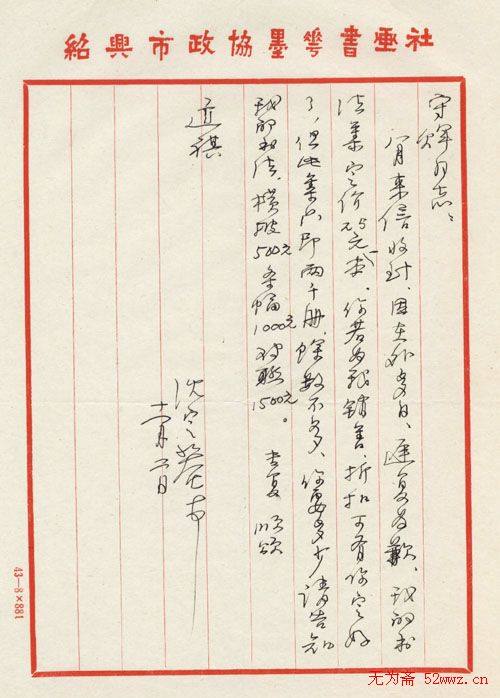 紹興市政協墨華書画社
同志：
月来信收到，因在外多日，遲复为歉，我的书
法集定价75元/本，你若为我銷售，折扣可有你定好
了，但此集只印两千册，餘数不多，你要多少請告知
我的书法，横披500元条幅1000元对联1500元。 专复 順頌
道祺
沈定庵
月 日
43—8×881
无为斋 52wwz.cn